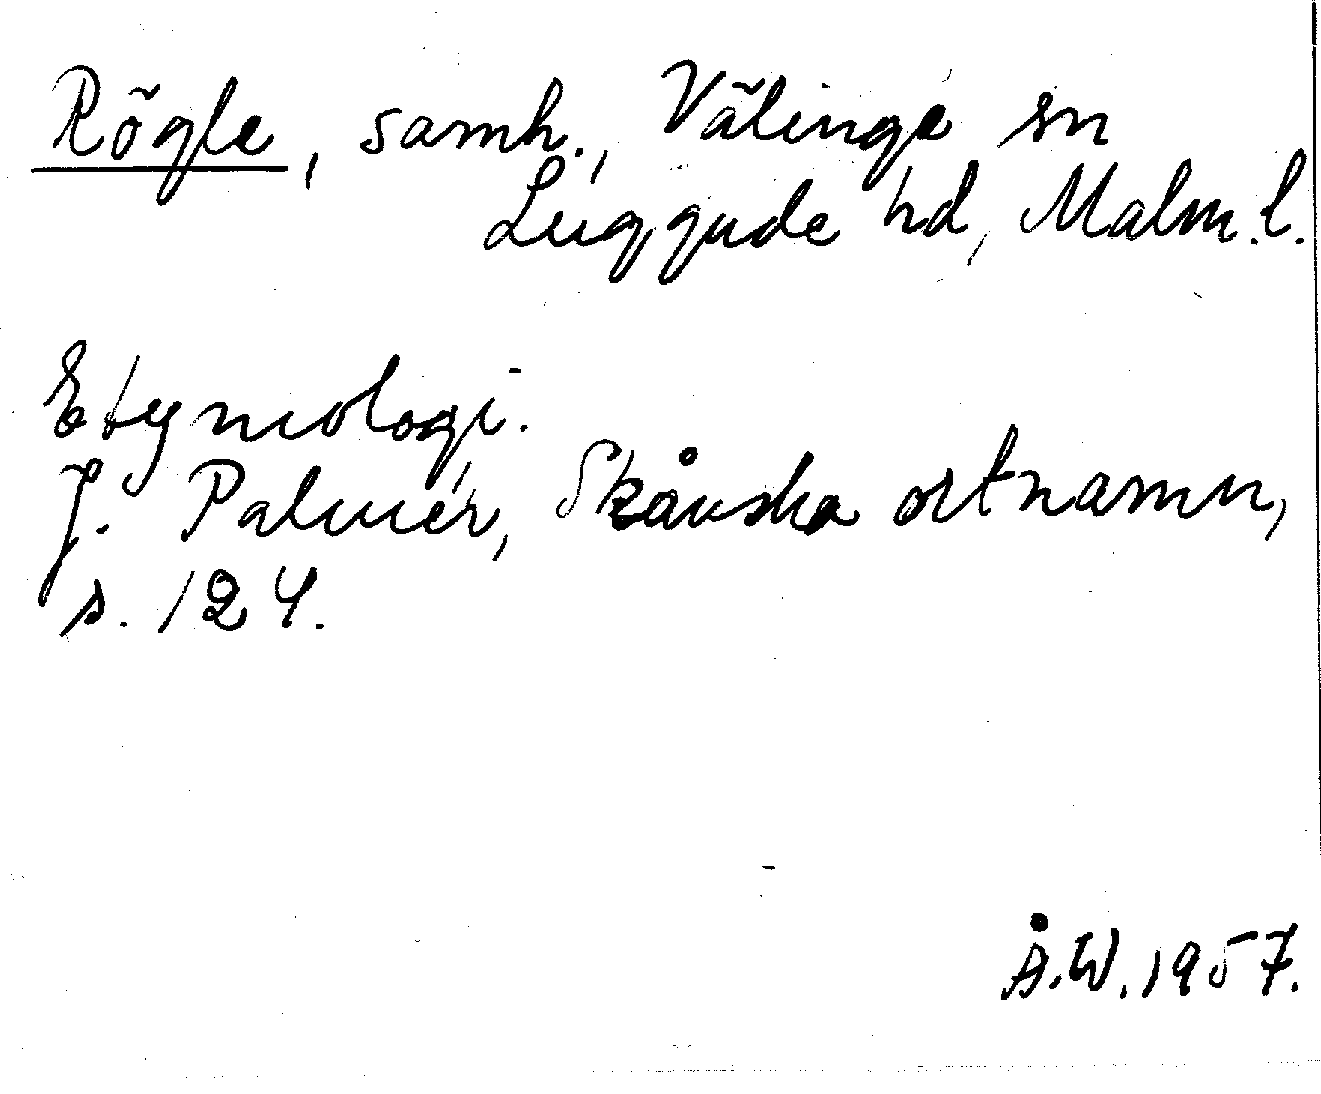 Rögle, samh., Välinge sn
Luggude hd, Malm.l.
Etymologi.
J. Palmér, Skånska ortnamn,
s. 124.
Å.W. 1957.